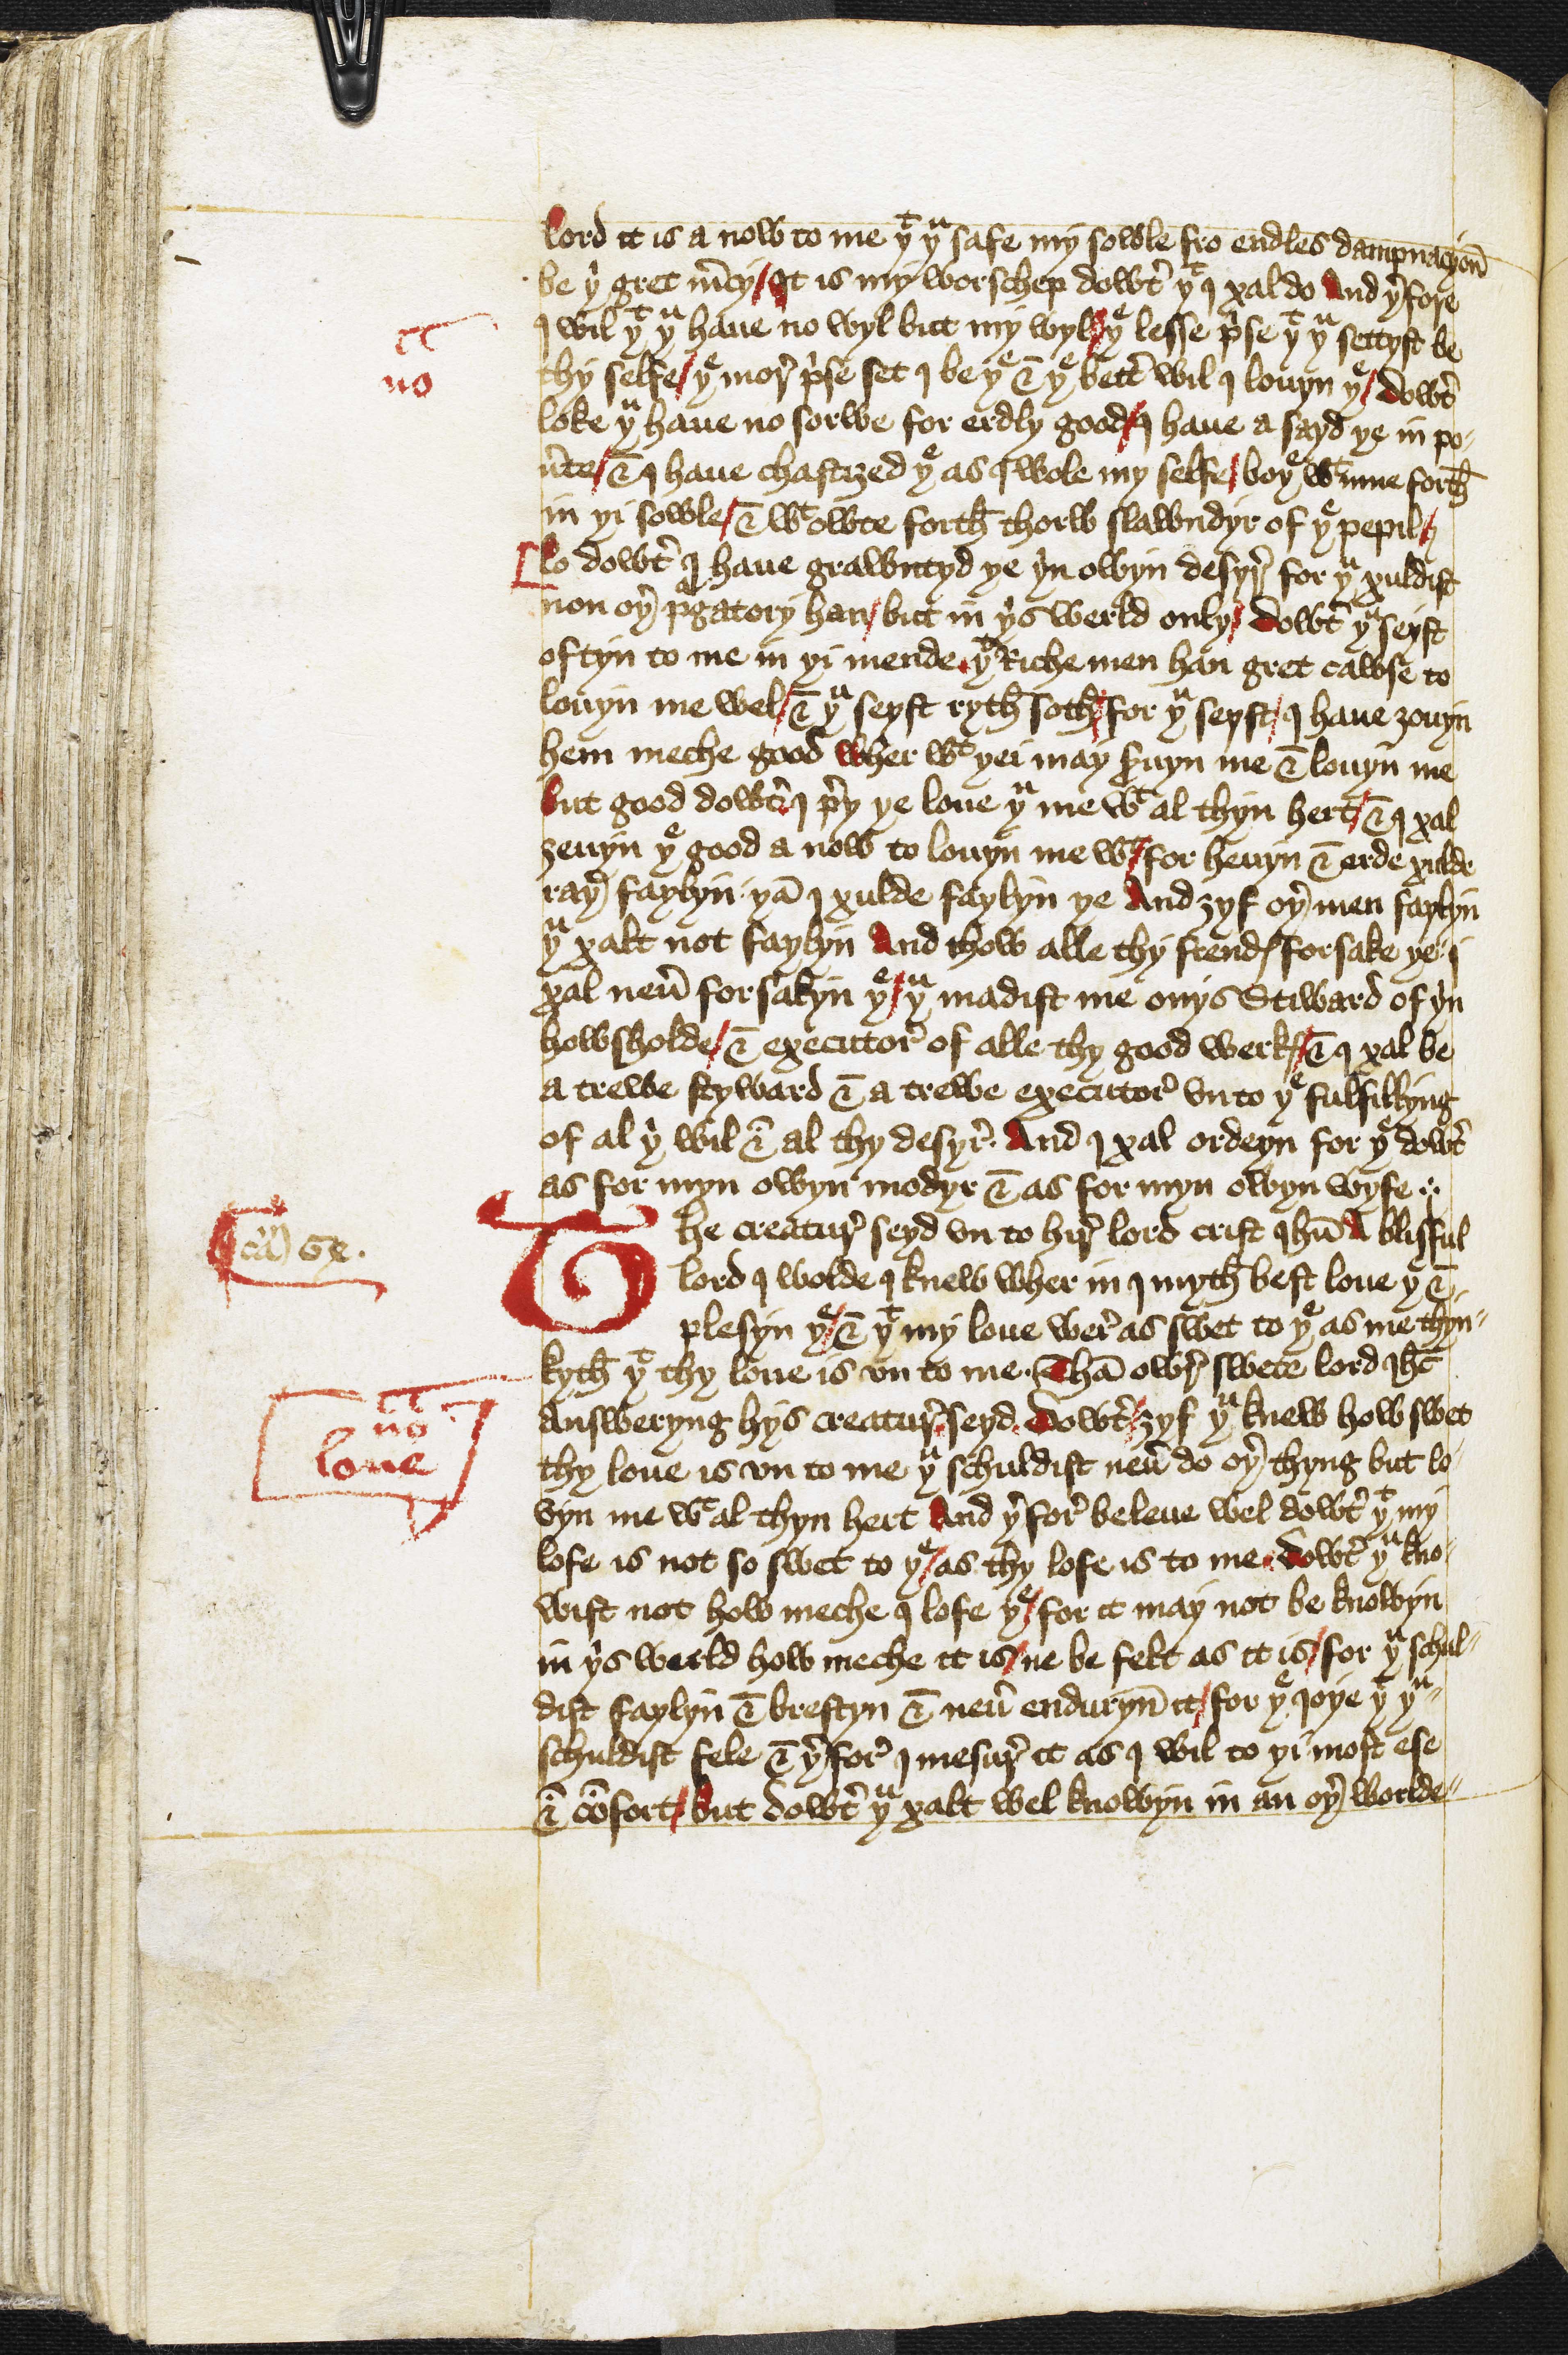 lord it is a now to me yᵗ yᵘ safe my sowle fro endles dampnacyon̄
be yʳ gret m̄cy / It is my worschep dowtʳ yᵗ I xal do And yʳfore
I wil yᵗ yᵘ haue no wyl but my wyl / yᵉ lesse pʳse yᵗ yᵘ settyst be
thy selfe / yᵉ morʳ pʳse set I be yᵉ & yᵉ bettʳ wil I louyn yᵉ / dowtʳ
nota
loke yᵘ haue no sorwe for erdly good / I haue a sayd ye in po-
u̕te / & I haue chastized yᵉ as I wole my selfe / boyᵉ wᵗ inne forth̄
in yi sowle / & wᵗ owte forth̄ thorw slawndyr of yᵉ pepil /
lo dowtʳ I haue grawntyd ye yʳn owyn desyrʳ for yᵘ xuldist
non oyʳ pʳgatory han / but in yʳs werld only / dowtʳ yᵘ seyst
oftyn to me in yi mende yᵗ Riche men han gret cawse to
louyn me wel / & yᵘ seyst ryth̄ soth̄ / for yᵘ seyst / I haue zouyn
hem meche good wher wᵗ yei may sʳuyn me & louyn me
but good dowtʳ I pʳy ye loue yᵘ me wᵗ al thyn hert / & I xal
zeuyn yᵉ good a now to louyn me wᵗ / for heuyn & erde xulde
rayʳ faylyn yā I xulde faylyn ye And zyf oyʳ men faylyn
yᵘ xalt not faylyn And thow alle thy frendꝭ forsake ye I
xal neuʳ forsakyn yᵉ / yᵘ madist me onys Stiward of yʳn
howsholde / & executorʳ of alle thy good werkꝭ / & I xal be
a trewe styward & a trewe executorʳ vn to yᵉ fulfillyng
of al yʳ wil & al thy desyrʳ. And I xal ordeyn for yᵉ dowtʳ
as for myn owyn modyr & as for myn owyn wyfe
caᵐ 65.
The creaturʳ seyd vn to hirʳ lord crist ihū A blisful
lord I wolde I knew wher in I myth̄ best loue yᵉ &
plesyn yᵉ / & yᵗ my loue werʳ as swet to yᵉ as me thyn-
kyth̄ yᵗ thy loue is vn to me. Thā owrʳ swete lord ihc̄
nota
loue
Answeryng hys creaturʳ seyd. Dowtʳ / zyf yᵘ knew how swet
thy loue is vn to me yᵘ schuldist neuʳ do oyʳ thyng but lo-
vyn me wᵗ al thyn hert And yʳforʳ beleue wel dowtʳ yᵗ my
lofe is not so swet to yᵉ / as thy lofe is to me. dowtʳ yᵘ kno-
wist not how meche I lofe yᵉ / for it may not be knowyn
in yʳs werld how meche it is / ne be felt as it is / for yᵘ schul-
dist faylyn & brestyn & neuʳ enduryn̄ it / for yᵉ ioye yᵗ yᵘ
schuldist fele & yʳforʳ I mesurʳ it as I wil to yi most ese
& cōfort / but dowtʳ yᵘ xalt wel knowyn in an oyʳ worlde